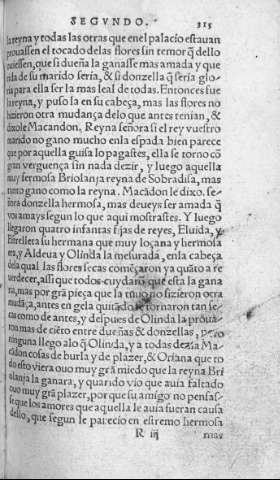 SEGVNDO. 315
la reyna y todas las otras que enel palacio estauan
prouassen el tocado delas flores sin temor q̃ dello
ouiessen, que si dueña la ganasse mas amada y que
rida de su marido seria, & si donzella q̃ seria glo-
ria para ella ser la mas leal de todas. Entonces fue
la reyna, y puso la en su cabeça, mas las flores no
hizieron otra mudança delo que antes tenian, &
dixole Macandon. Reyna señora si el rey vuestro
marido no gano mucho enla espada bien parece
que por aquella guisa lo pagastes, ella se torno cõ
gran verguença sin nada dezir, y luego aquella
muy fermosa Briolanja reyna de Sobradisa, mas
tanto gano como la reyna. Macãdon le dixo. se-
ñora donzella hermosa, mas deueys ser amada q̃
vos amays segun lo que aqui mostrastes. Y luego
llegaron quatro infantas fijas de reyes, Eluida, y
Estrelleta su hermana que muy loçana y hermosa
era, y Aldeua y Olinda la mesurada, enla cabeça
dela qual las flores secas començaron ya quãto a re
uerdecer, assi que todos cuydarõ que esta la gana
ra, mas por grã pieça que la tuuo no fizieron otra
mudãça, antes en gela quitãdo se tornaron tan se-
cas como de antes, y despues de Olinda la proua-
ron mas de ciẽto entre dueñas & donzellas, pero
ninguna llego alo q̃ Olinda, y a todas dezia Ma-
cadon cosas de burla y de plazer, & Oriana que to
do esto viera ouo muy grã miedo que la reyna Bri
olanja la ganara, y quando vio que auia faltado
ouo muy grã plazer, por que su amigo no pensas-
se que los amores que aquella le auia fueran causa
dello, que segun le parecio en estremo hermosa
R iij mas